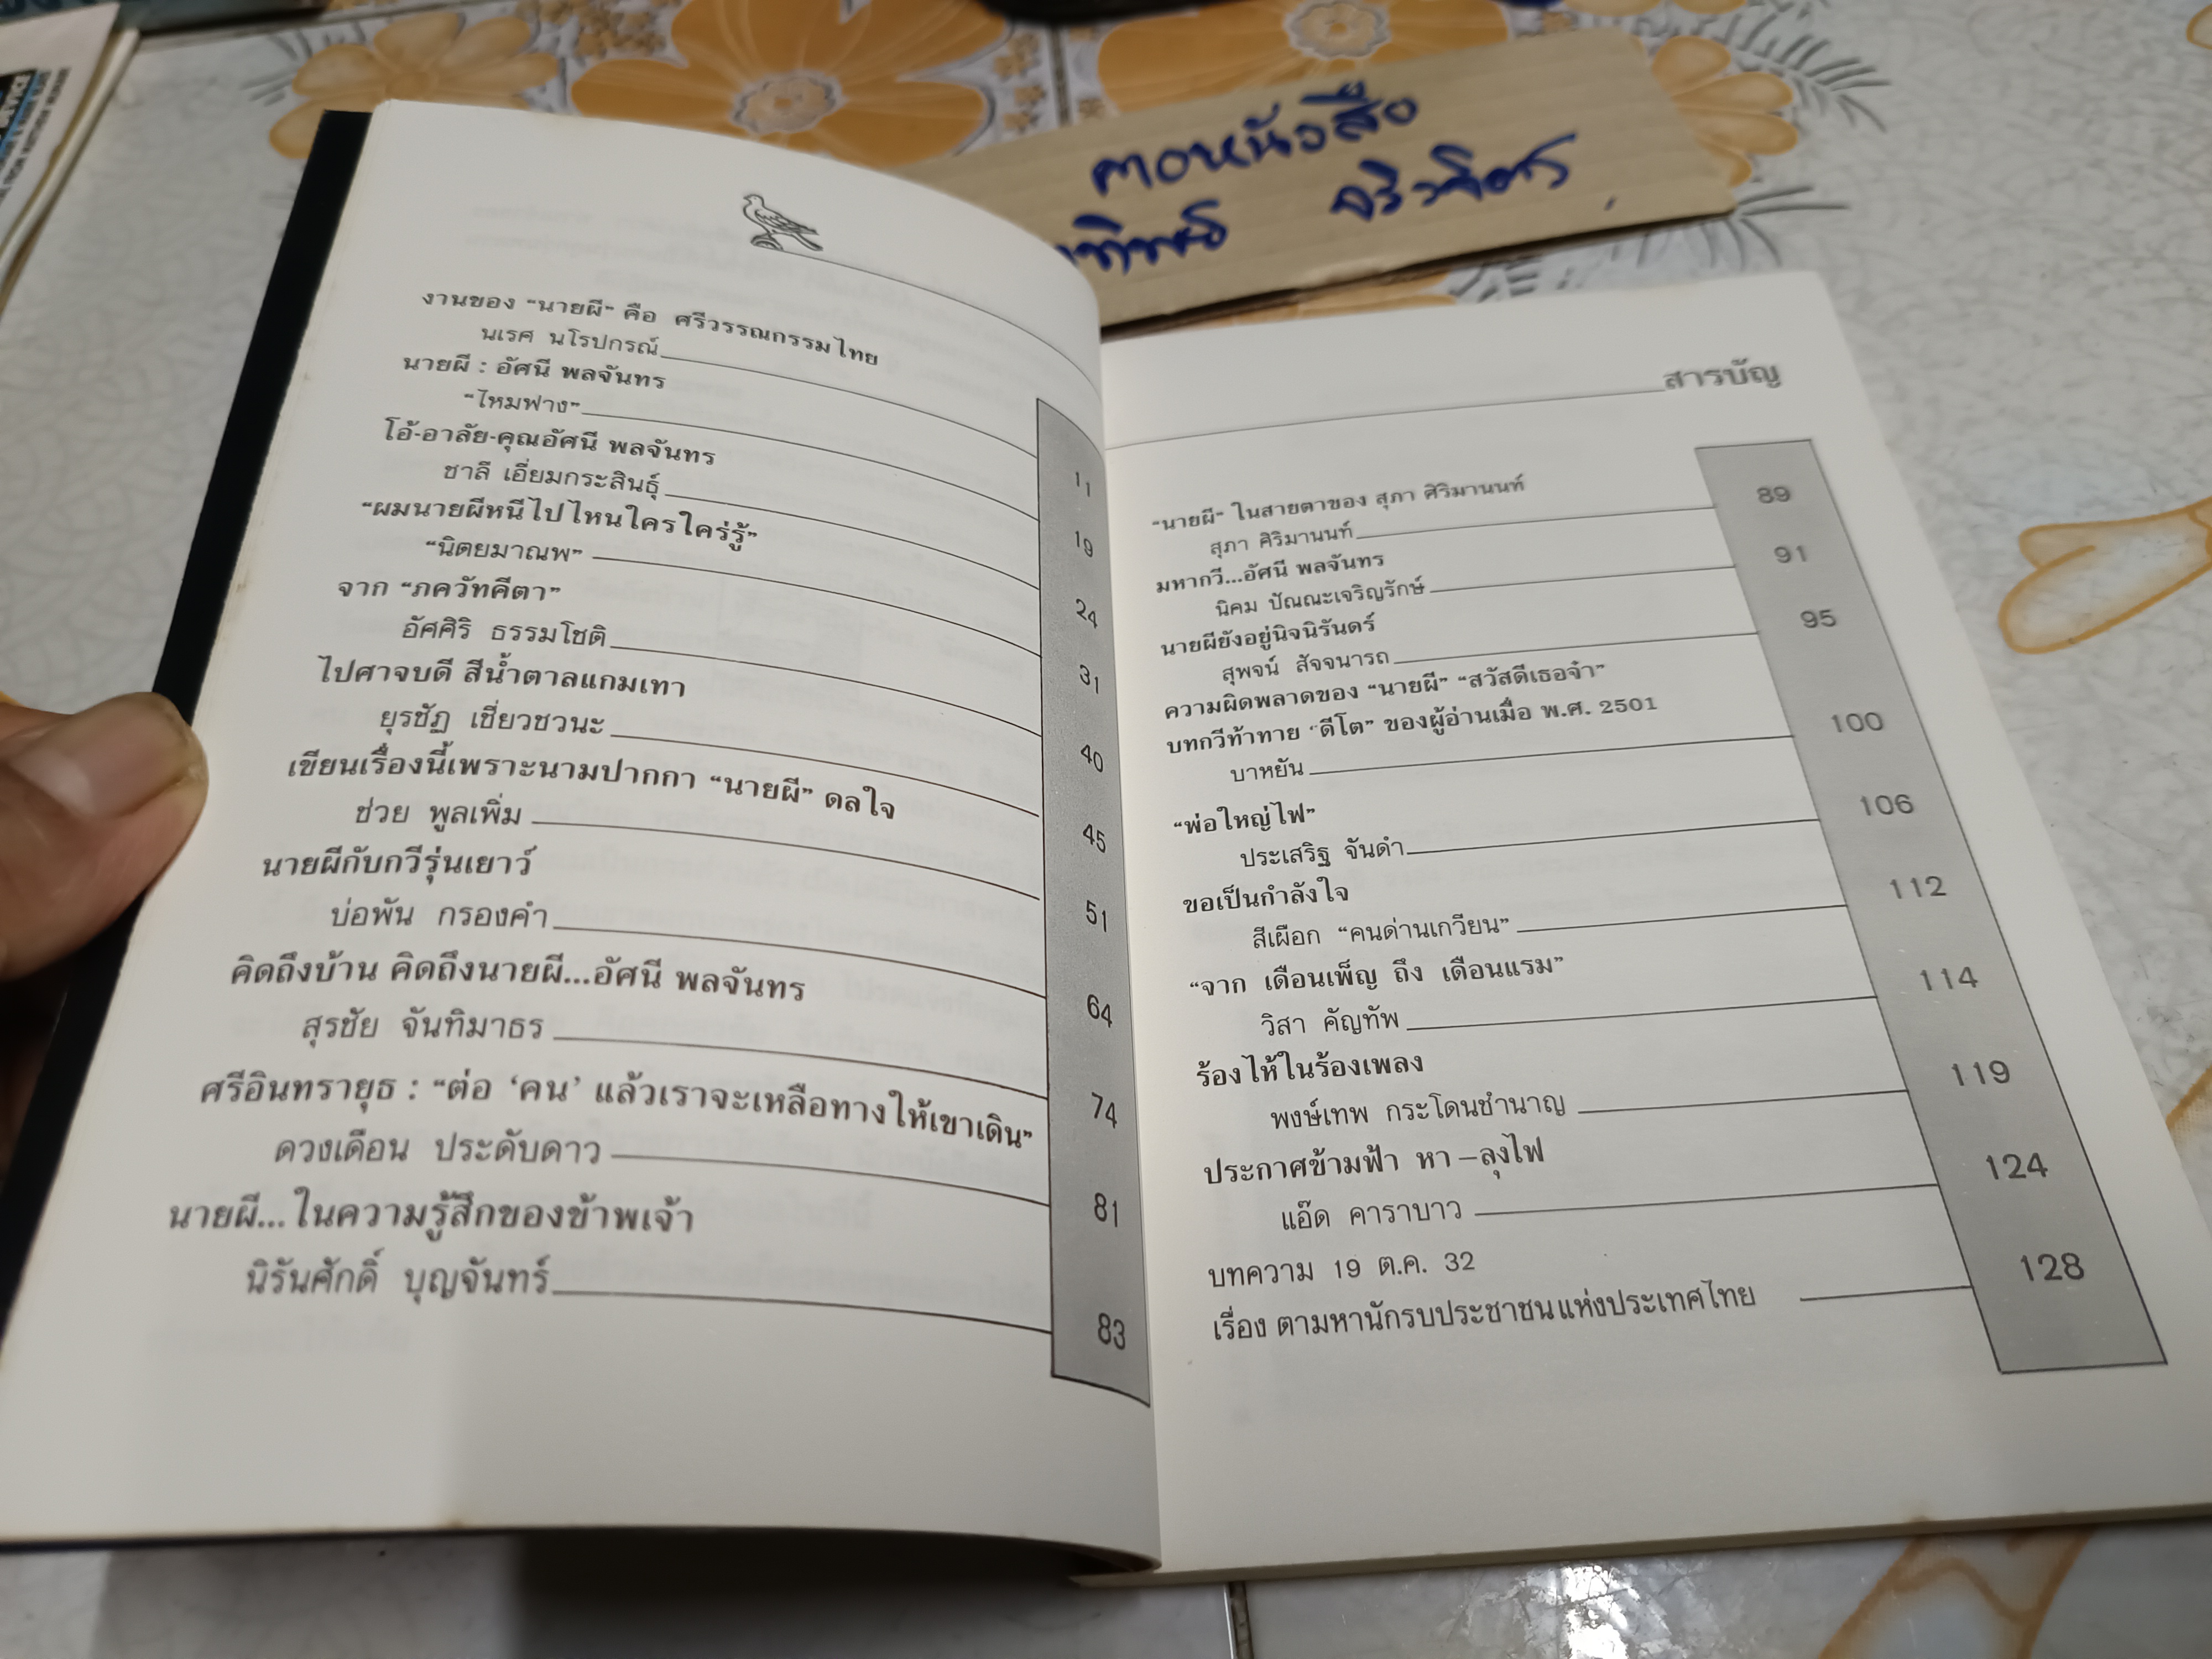 งานของ “นายผี” คือ ศรีวรรณกรรมไทย
นเรศ นโรปกรณ์ 11
นายผี : อัศนี พลจันทร
“ไหมฟาง” 19
โอ้-อาลัย-คุณอัศนี พลจันทร
ชาลี เอี่ยมกระสินธุ์ 24
“ผมนายผีหนีไปไหนใครใคร่รู้”
“นิตยมาณพ” 31
จาก “ภควัทคีตา”
อัศศิริ ธรรมโชติ 40
ไปศาจบดี สีน้ำตาลแกมเทา
ยุรชัฏ เชี่ยวชวนะ 45
เขียนเรื่องนี้เพราะนามปากกา “นายผี” ดลใจ
ช่วย พูลเพิ่ม 51
นายผีกับกวีรุ่นเยาว์
บ่อพัน กรองคำ 64
คิดถึงบ้าน คิดถึงนายผี...อัศนี พลจันทร
สุรชัย จันทิมาธร 74
ศรีอินทรายุธ : “ต่อ ‘คน’ แล้วเราจะเหลือทางให้เขาเดิน”
ดวงเดือน ประดับดาว 81
นายผี...ในความรู้สึกของข้าพเจ้า
นิรันศักดิ์ บุญจันทร์ 83
สารบัญ
“นายผี” ในสายตาของ สุภา ศิริมานนท์
สุภา ศิริมานนท์ 89
มหากวี...อัศนี พลจันทร
นิคม ปัณณะเจริญรักษ์ 91
นายผียังอยู่นิจนิรันดร์
สุพจน์ สัจจนารถ 95
ความผิดพลาดของ “นายผี” “สวัสดีเธอจ๋า”
บทกวีท้าทาย “ดีโต” ของผู้อ่านเมื่อ พ.ศ. 2501
บาหยัน 100
“พ่อใหญ่ไฟ”
ประเสริฐ จันดำ 106
ขอเป็นกำลังใจ
สีเผือก “คนด่านเกวียน” 112
“จาก เดือนเพ็ญ ถึง เดือนแรม”
วิสา คัญทัพ 114
ร้องไห้ในร้องเพลง
พงษ์เทพ กระโดนชำนาญ 119
ประกาศข้ามฟ้า หา –ลุงไฟ
แอ๊ด คาราบาว 124
บทความ 19 ต.ค. 32
เรื่อง ตามหานักรบประชาชนแห่งประเทศไทย 128